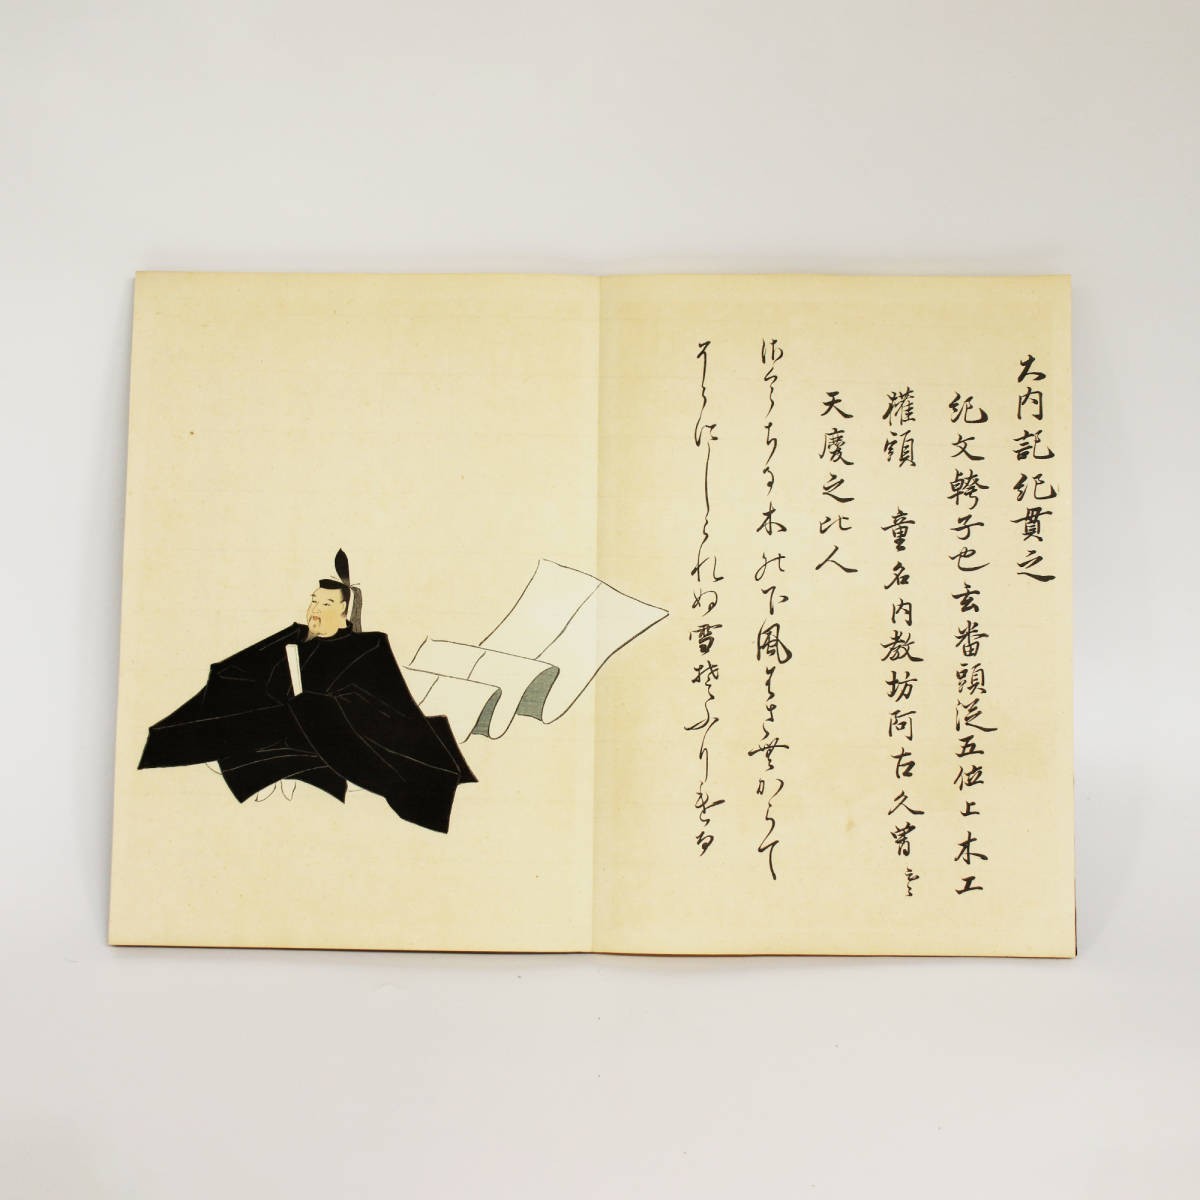 大内記紀貫之
紀文幹子也玄番頭従五位上木工
権頭　童名内教坊阿古久曽云々
天慶之比人
さくらちる木の下風はさむからて
そらにしられぬ雪そふりける